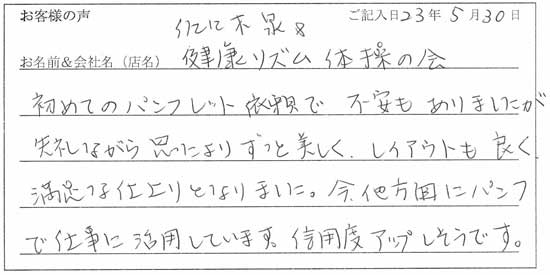 お客様の声 ご記入日23年5月30日
お名前&会社名(店名) 佐々木 泉
健康リズム体操の会
初めてのパンフレット依頼で 不安もありましたが
失礼しながら思ったよりずっと美しく、レイアウトも良く
満足な仕上りとなりました。今、他方面にパンフ
で仕事に活用しています。信用度アップしそうです。